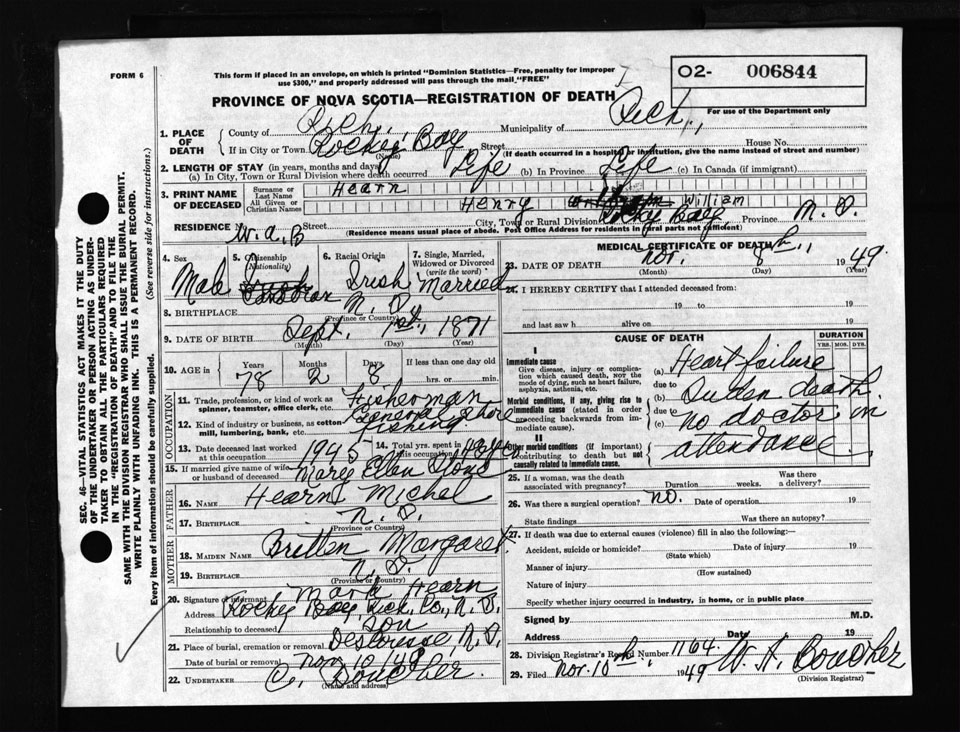 FORM 6
This form if placed in an envelope, on which is printed "Dominion Statistics—Free, penalty for improper
use $300," and properly addressed will pass through the mail "FREE"
O2- 006844
For use of the Department only
PROVINCE OF NOVA SCOTIA—REGISTRATION OF DEATH
1. PLACE OF DEATH
County of Rich. Municipality of Rich.,
If in City or Town Rocky Bay Street House No.
(Name) (If death occurred in a hospital or institution, give the name instead of street and number)
2. LENGTH OF STAY (in years, months and days)
(a) In City, Town or Rural Division where death occurred Life (b) In Province Life (c) In Canada (if immigrant)
3. PRINT NAME OF DECEASED
Surname or Last Name Hearn
All Given or Christian Names Henry William
RESIDENCE W.A.B Street City, Town or Rural Division Rocky Bay, Province N.S.
(Residence means usual place of abode. Post Office Address for residents in rural parts not sufficient)
4. Sex Male
5. Citizenship (Nationality) Canadian
6. Racial Origin Irish
7. Single, Married, Widowed or Divorced (write the word) Married
8. BIRTHPLACE N.S.
(Province or Country)
9. DATE OF BIRTH Sept. 1st, 1871
(Month) (Day) (Year)
10. AGE in Years 78 Months 2 Days 8 If less than one day old hrs. or min.
OCCUPATION
11. Trade, profession, or kind of work as spinner, teamster, office clerk, etc. Fisherman
12. Kind of industry or business, as cotton mill, lumbering, bank, etc. General Shore Fishing.
13. Date deceased last worked at this occupation 1945
14. Total yrs. spent in this occupation
15. If married give name of wife or husband of deceased Mary Ellen
FATHER
16. NAME Hearn Michel
17. BIRTHPLACE N.S.
(Province or Country)
MOTHER
18. MAIDEN NAME Britten Margaret
19. BIRTHPLACE N.S.
(Province or Country)
20. Signature of informant Mark Hearn
Address Rocky Bay, Rich. Co., N.S.
Relationship to deceased Son
21. Place of burial, cremation or removal Descousse, N.S.
Date of burial or removal Nov 10 1949
22. UNDERTAKER C. Boucher.
(Name and address)
MEDICAL CERTIFICATE OF DEATH
23. DATE OF DEATH Nov. 8th, 1949.
(Month) (Day) (Year)
24. I HEREBY CERTIFY that I attended deceased from:
19 to 19
and last saw h alive on 19
CAUSE OF DEATH
DURATION
YRS. MOS. DYS.
I
Immediate cause
Give disease, injury or complication which caused death, not the mode of dying, such as heart failure, asphyxia, asthenia, etc.
(a) Heart failure
due to
Morbid conditions, if any, giving rise to immediate cause (stated in order proceeding backwards from immediate cause).
(b) Sudden death.
due to
(c) no doctor in
attendance.
II
Other morbid conditions (if important) contributing to death but not causally related to immediate cause.
25. If a woman, was the death associated with pregnancy? Duration weeks. Was there a delivery?
26. Was there a surgical operation? no. Date of operation 19
State findings Was there an autopsy?
27. If death was due to external causes (violence) fill in also the following:—
Accident, suicide or homicide? Date of injury 19
(State which)
Manner of injury
(How sustained)
Nature of injury
Specify whether injury occurred in industry, in home, or in public place
Signed by M.D.
Address Date 19
28. Division Registrar's Record Number 1164.
29. Filed Nov. 10th, 1949 W. A. Boucher
(Division Registrar)
SEC. 46—VITAL STATISTICS ACT MAKES IT THE DUTY
OF THE UNDERTAKER OR PERSON ACTING AS UNDER-
TAKER TO OBTAIN ALL THE PARTICULARS REQUIRED
IN THE "REGISTRATION OF DEATH" AND TO FILE THE
SAME WITH THE DIVISION REGISTRAR WHO SHALL ISSUE THE BURIAL PERMIT.
WRITE PLAINLY WITH UNFADING INK. THIS IS A PERMANENT RECORD.
Every item of information should be carefully supplied. (See reverse side for instructions.)